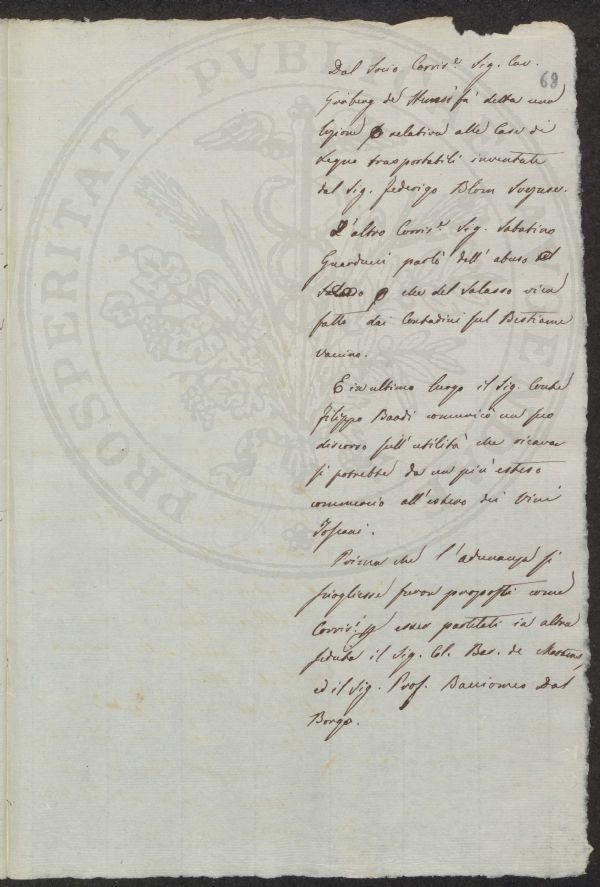 68
Dal Socio Corris.e Sig. Cav.
Gråberg de Hemsö fù detta una
lezione relativa alle Case di
Legno trasportabili inventate
dal Sig. Federigo Blom Svezzese.
L'altro Corris.e Sig. Sabatino
Guarducci parlò dell'abuso
che del Salasso vien
fatto dai Contadini sul Bestiame
vaccino.
E in ultimo luogo il Sig. Conte
Filippo Bardi comunicò un suo
discorso sull'utilità che ricavar
si potrebbe da un più esteso
commercio all'estero dei Vini
Toscani.
Prima che l'adunanza si
sciogliesse furon proposti come
Corris.i esser partitati in altra
seduta il Sig. Bar. de
ed il Sig. Prof. Bacciomeo Dal
Borgo.
PROSPERITATI PUBLICAE